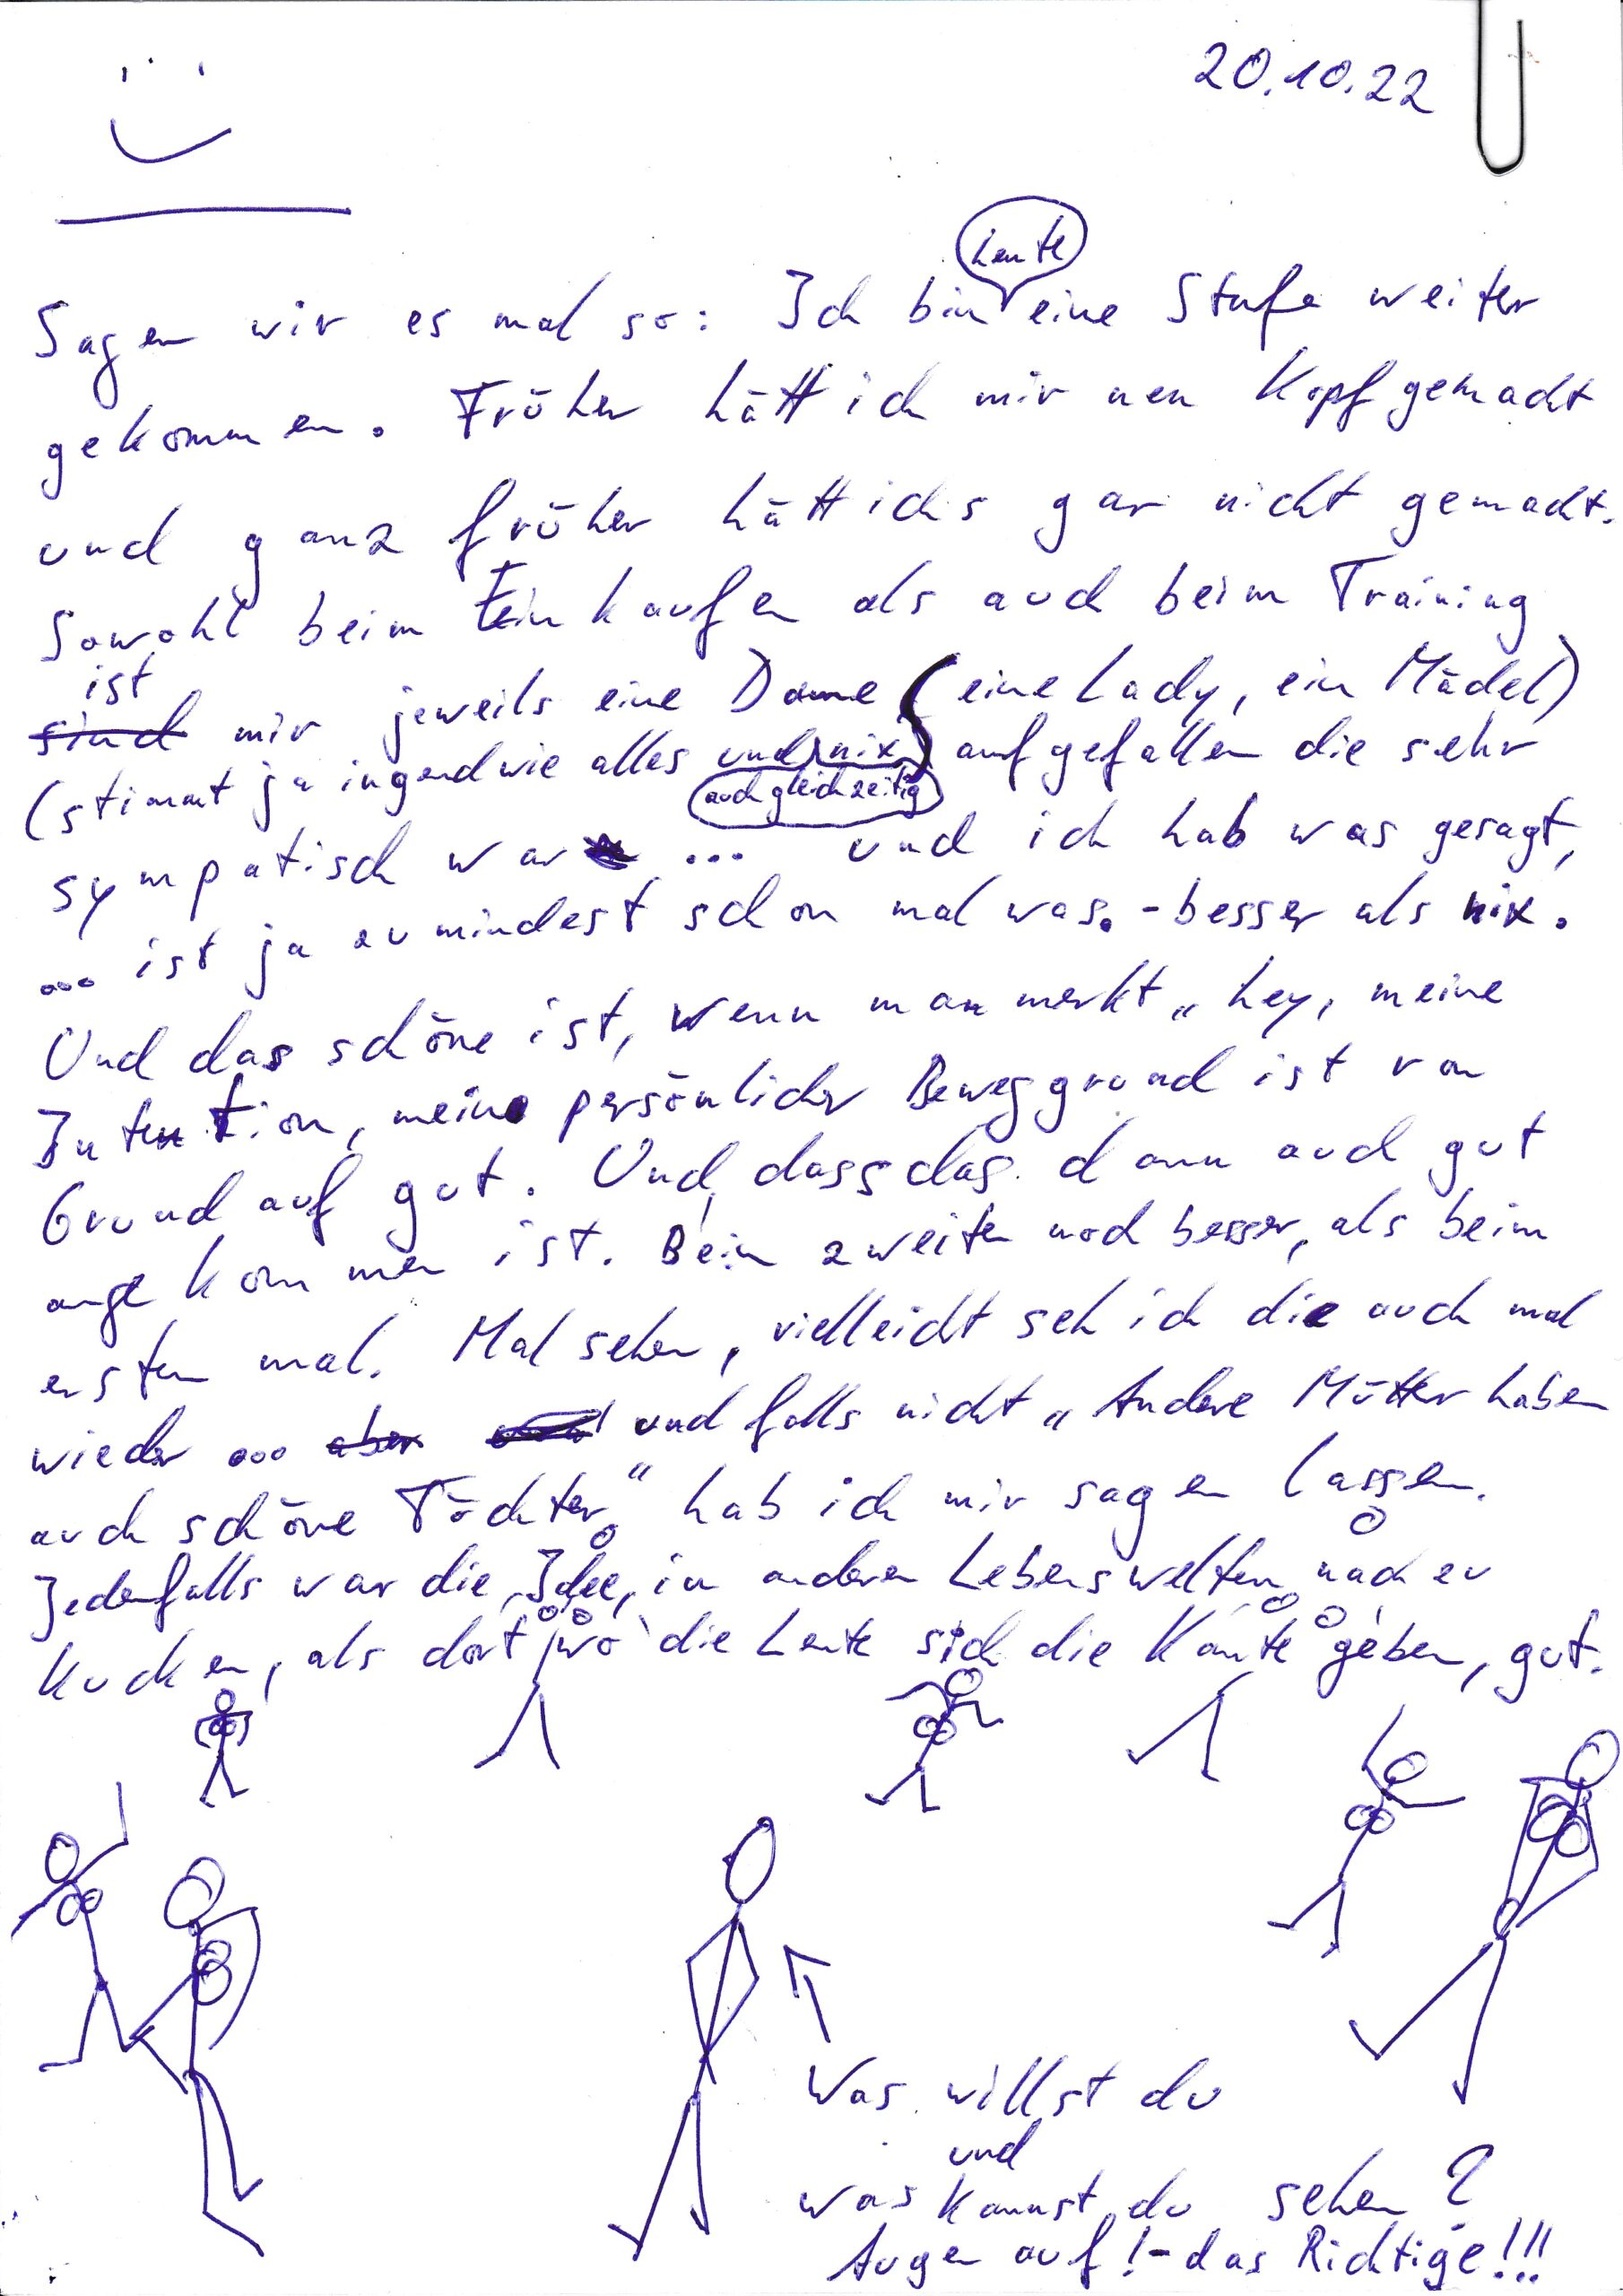 20.10.22
heute
Sagen wir es mal so: Ich bin eine Stufe weiter
gekommen. Früher hätt ich mir nen Kopf gemacht
und ganz früher hätt ichs gar nicht gemacht.
Sowohl beim Einkaufen als auch beim Training
ist
sind mir jeweils eine Dame (eine Lady, ein Mädel)
(stimmt ja irgendwie alles und nix) aufgefallen die sehr
auch gleichzeitig
sympatisch war ... und ich hab was gesagt,
... ist ja zumindest schon mal was. - besser als nix.
Und das schöne ist, wenn man merkt „hey, meine
Intention, mein persönlicher Beweggrund ist von
Grund auf gut. Und, dass das dann auch gut
angekommen ist. Beim zweiten noch besser, als beim
ersten mal. Mal sehen, vielleicht seh ich die auch mal
wieder ... aber und falls nicht „Andere Mütter haben
auch schöne Töchter" hab ich mir sagen lassen.
Jedenfalls war die Idee, in anderen Lebenswelten nach zu
kucken, als dort wo die Leute sich die Kante geben, gut.
Was willst du
und
was kannst du sehen?
Augen auf! - das Richtige!!!